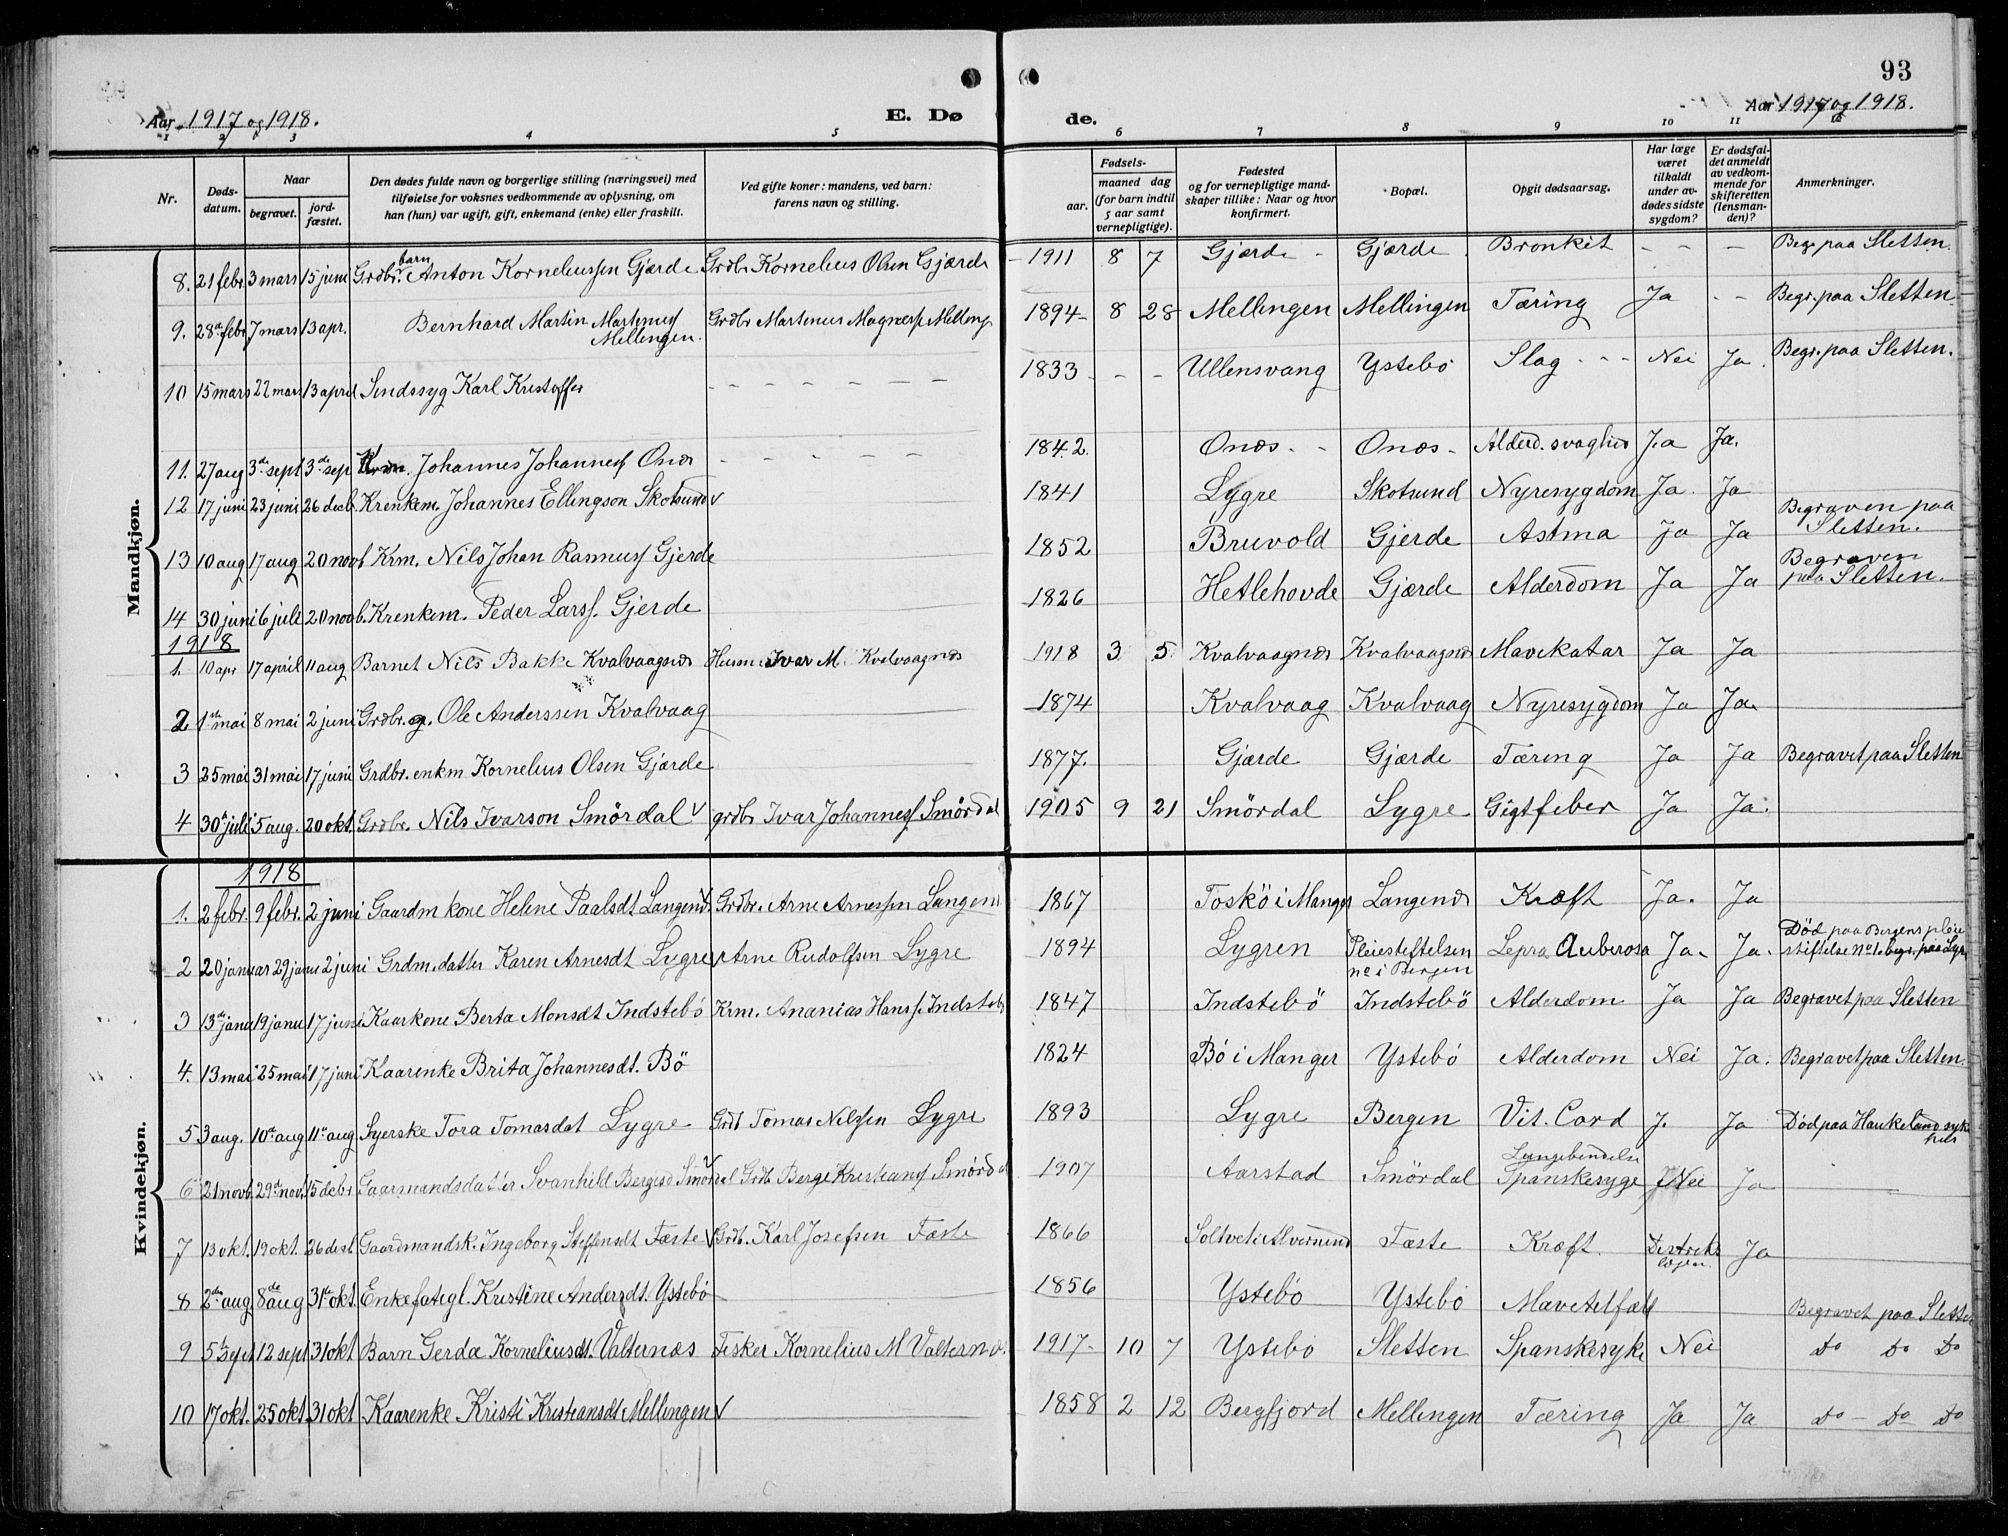 93
Aar 1917 og 1918.
E. Dø
de.
Aar 1917 og 1918.
1 2 3 4 5 6 7 8 9 10 11 12
Nr.
Døds-
datum.
Naar
begravet.
jord-
fæstet.
Den dødes fulde navn og borgerlige stilling (næringsvei) med
tilføielse for voksnes vedkommende av oplysning, om
han (hun) var ugift, gift, enkemand (enke) eller fraskilt.
Ved gifte koner: mandens, ved barn:
farens navn og stilling.
Fødsels-
aar.
maaned dag
(for barn indtil
5 aar samt
vernepligtige).
Fødested
og for vernepligtige mand-
skaper tillike: Naar og hvor
konfirmert.
Bopæl.
Opgit dødsaarsag.
Har læge
været
tilkaldt
under av-
dødes sidste
sygdom?
Er dødsfal-
det anmeldt
av vedkom-
mende for
skifteretten
(lensman-
den)?
Anmerkninger.
Mandkjøn.
8. 21 febr. 3 mars 15 juni Grdbr. barn Anton Korneliussen Gjærde Grdbr Kornelius Olsen Gjærde 1911 8 7 Gjærde - Gjærde Bronkit - - - Begr. paa Sletten.
9. 28de febr 7 mars 13 apr. Bernhard Martin Martenuss Mellingen. Grdbr Martenus Magness Melling 1894 - 8 28 Mellingen Mellingen Tæring Ja - - Begr. paa Sletten.
10 15 mars 22 mars 13 april Sindssyg Karl Kristoffer - - - - - - - 1833 - - - Ullensvang Ystebö Slag - - - Nei Ja. Begr. paa Sletten.
11. 27 aug 3de sept 3de sep Johannes Johanness Onæs - - - - - 1842. Onæs. - - Onæs - Alderd. svaghed Ja Ja.
12 17 juni 23 juni 26 decb. Krenkem. Johannes Ellingson Skotsund v 1841 Lygre Skotsund Nyresygdom Ja. Ja
13 10 aug 17 aug 20 novb Krm. Nils Johan Rasmuss Gjerde 1852 Bruvold Gjerde Astma Ja Ja Begraven paa Sletten.
14 30 juni 6 juli 20 novb. Krenkem. Peder Larss. Gjerde 1826 Hetlehovde Gjærde Alderdom Ja Ja Begraven paa Sletten.
1918
1. 10 apr 17 april 11 aug Barnet Nils Bakke Kvalvaagnes Husm. Ivar M. Kvalvaagnæs 1918 3 5 Kvalvaagnæs Kvalvaagnæs Mavekatar Ja Ja
2 1ste mai 8 mai 2 juni Grdbr. g. Ole Anderssen Kvalvaag 1874 Kvalvaag Kvalvaag Nyresygdom Ja Ja.
3 25 mai 31 mai 17 juni Grdbr. enkm Kornelius Olsen Gjærde 1877. Gjærde Gjærde Tæring Ja Ja Begravet paa Sletten
4 30te juli 5 aug. 20 okt. Grdbr. Nils Ivarson Smördal v grdbr Ivar Johanness Smördal 1905 9 21 Smördal Lygre Gigtfeber Ja Ja.
Kvindekjøn.
1918
1. 2 febr. 9 febr. 2 juni Gaardm kone Helene Paalsdt Langenes Grdbr. Arne Arnessen Langenes 1867 Toskö i Manger Langenes Kræft Ja. Ja
2 20 januar 29 janu 2 juni Grdm. datter Karen Arnesdt Lygre v Arne Rudolfsen Lygre 1894 Lygren Pleiestiftelsen ne i Bergen Lepra Auberosa Ja. Ja. Død paa Bergens pleie stiftelse No 1. begr. paa Lygre
3 13de janu 19 janu 17 juni Kaarkone Berta Monsdt Indstebö Krm. Ananias Hanss Indstebö 1847 Indstebö Indstebö Alderdom Ja Ja Begravet paa Sletten
4. 13 mai 25 mai 17 juni Kaarenke Brita Johannesdt. Bö 1824 Bö i Manger Ystebö Alderdom Nei Ja. Begravet paa Sletten.
5 3 aug. 10de aug 11te aug Syerske Tora Tomasdat Lygre Grdb Tomas Nilssen Lygre 1893 Lygre Bergen Vit. Cord J. Ja Död paa Haukeland syke hus
6 21 novb. 29de nov. 15 debr Gaarmandsdatter Svanhild Bergesd Smördal v Grdb Berge Kristians Smördal 1907 Aarstad Smördal Lungebendelse Spanskesyge Nei Ja
7 13 okt. 19 okt. 26 desb Gaardmandsk. Ingeborg Steffensdt Fæste v Grdb. Karl Josefsen Fæste 1866 Soltvet i Alversund Fæste Kræft. Destrekts lægen. Ja
8 2den aug 8de aug 31te okt. Enke fategl. Kristine Andersdt. Ystebö 1856 Ystebö Ystebö Mavetelfæll Begravet paa Sletten
9 5te sept 12 sept 31 okt Barn Gerda Korneliusdt. Valternæs Fisker Kornelius M Valternæs 1917 - 10 7 Ystebö Sletten Spanskesyke Nei Do Do Do
10 17 okt. 25 okt. 31 okt Kaarenke Kristi Kristeansdt Mellingen v 1858 2 12 Bergfjord Mellingen Tæring Ja Ja Do - Do Do